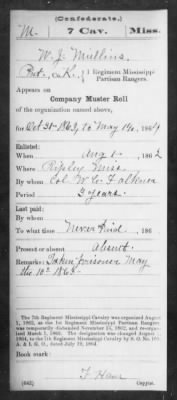 (Confederate.)
M. | 7 Cav. | Miss.
W. J. Mullins
Pvt., Co. K., 1 Regiment Mississippi Partisan Rangers.
Appears on
Company Muster Roll
of the organization named above,
for Oct 31 1863, to May 1864
Enlisted:
When Aug 1, 1862
Where Ripley Miss.
By whom Col W. C. Falkner
Period 3 years.
Last paid:
By whom
To what time Never Paid, 186
Present or absent absent
Remarks: Taken prisoner May
the 10th 1863.
The 7th Regiment Mississippi Cavalry was organized August
1, 1862, as the 1st Regiment Mississippi Partisan Rangers;
was temporarily disbanded November 15, 1862, and reorganized
March 1, 1863. The designation was changed
to 7th Regiment Mississippi Cavalry by S. O. No.
A. & I. G. O., dated July 19, 1864.
Book mark:
(642)
Copyist.